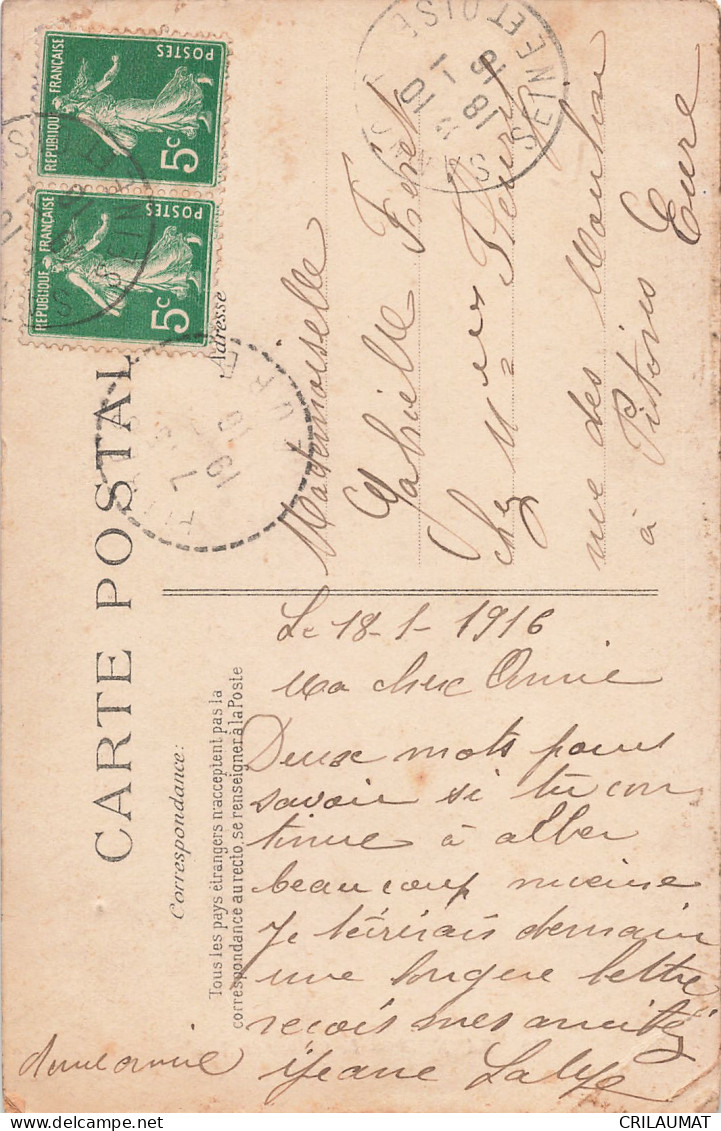 CARTE POSTALE
Correspondance :
Tous les pays étrangers n'acceptent pas la
correspondance au recto, se renseigner à la Poste
Adresse
REPUBLIQUE FRANÇAISE
POSTES
5c
REPUBLIQUE FRANÇAISE
POSTES
5c
SEINE ET OISE
10
18 1
16
URE
19
16
Mademoiselle
Gabrielle
Chez Mme Fleury
rue des Moulin
à Pitres Eure
Le 18-1-1916
Ma cher Amie
Deux mots pour
savoir si tu con
tinue à aller
beaucoup mieux
Je t'écrirais demain
une longue lettre
reçois mes amitiés
Jeane
CRILAUMAT